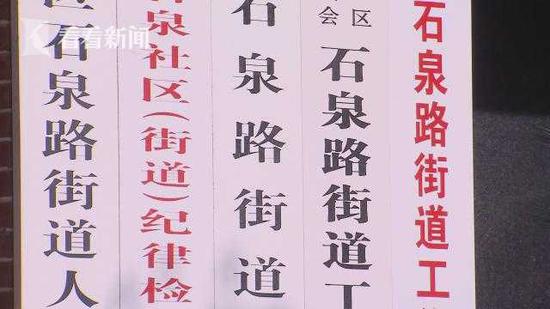 看看新闻
石泉路街道人
石泉社区(街道)纪律检
石泉路街道
会 区
石泉路街道工
石泉路街道工